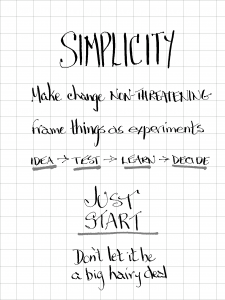 SIMPLICITY
Make change NON-THREATENING
frame things as experiments
IDEA → TEST → LEARN → DECIDE
JUST
START
Don't let it be
a big hairy deal